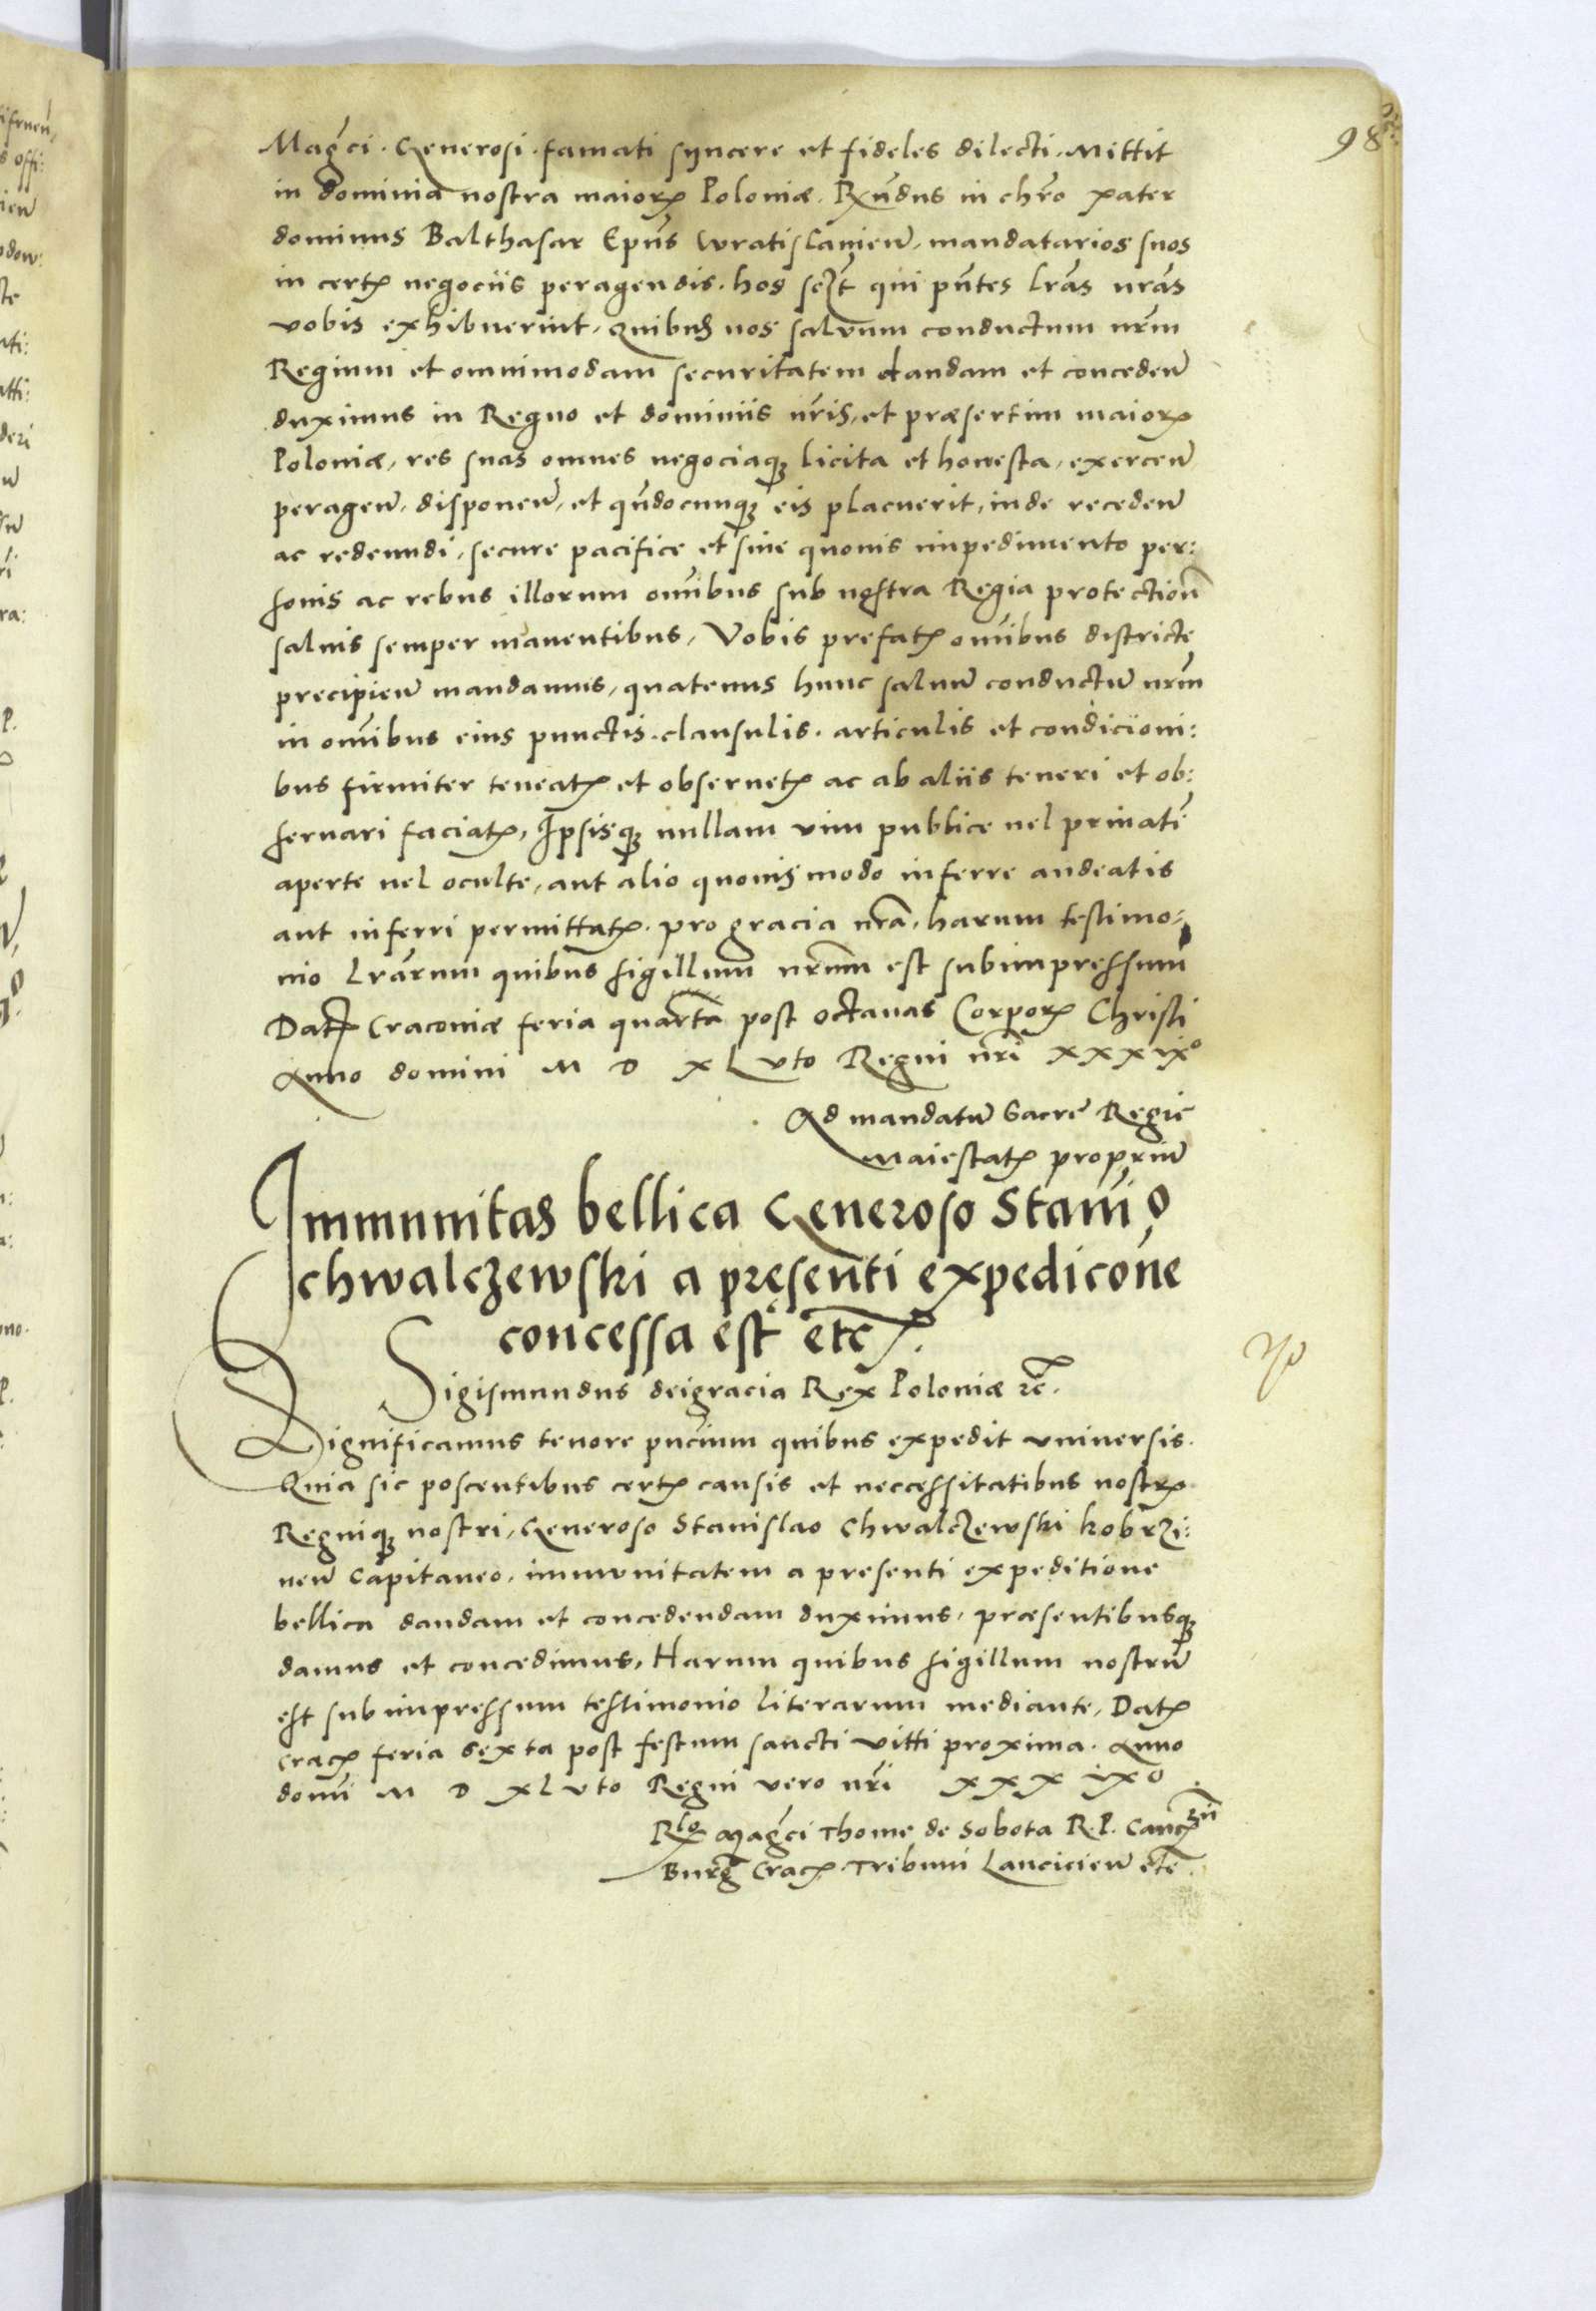 98
Magci. Generosi. famati syncere et fideles dilecti. Mittit
in dominia nostra maiorꝫ Poloniæ. Rxndus in chro pater
dominus Balthasar Epus Wratislauien. mandatarios suos
in certꝫ negociis peragendis. hos sczt qui pntes lras nras
vobis exhibuerint. Quibus nos saluum conductum nrm
Regium et omnimodam securitatem dandam et conceden
duximus in Regno et dominiis nris, et præsertim maiorꝫ
Poloniæ, res suas omnes negociaqꝫ licita et honesta, exercen
peragen. disponen, et qndocunqꝫ eis placuerit, inde receden
ac redeundi, secure pacifice et sine quouis impedimento per:
sonis ac rebus illorum omibus sub nostra Regia protection
saluis semper manentibus, Vobis prefatꝫ omibus districte
precipien mandamus, quatenus hunc saluu conductu nrm
in omibus eius punctis. clausulis. articulis et condicioni:
bus firmiter teneatꝫ et obseruetꝫ ac ab aliis teneri et ob:
seruari faciatꝫ, Ipsisqꝫ nullam vim publice uel priuatĕ
aperte uel oculte, aut alio quouis modo inferre audeatis
aut inferri permittatꝫ. pro gracia nra. harum testimo:
nio lrarum quibus sigillum nrum est subimpressum
Datꝫ Cracouiæ feria quarta post octauas Corporꝫ Christi
Anno domini M D XLvto Regni nri xxxixo
Ad mandatu Sacre Regie
Maiestatꝫ propriu
Immunitas bellica Generoso Stanio
chwalczewski a pręsenti expedicone
concessa est etcꝫ.
Sigismundus deigracia Rex Poloniæ ꝛc.
Significamus tenore pncium quibus expedit vniuersis.
Quia sic poscentibus certꝫ causis et neccessitatibus nostrꝫ
Regniqꝫ nostri, Generoso Stanislao Chwalczewski kobrzi:
nen Capitaneo, immunitatem a presenti expeditione
bellica dandam et concedendam duximus, præsentibusqꝫ
damus et concedimus, Harum quibus sigillum nostru
est subimpressum testimonio literarum mediante, Datꝫ
cracꝫ feria sexta post festum sancti vitti proxima. Anno
domi M D XLvto Regni vero nri xxx ixo.
Rlo Magci Thome de Sobota R. P. Cancꝫrii
Burg Cracꝫ Tribuni Lancicien etc.